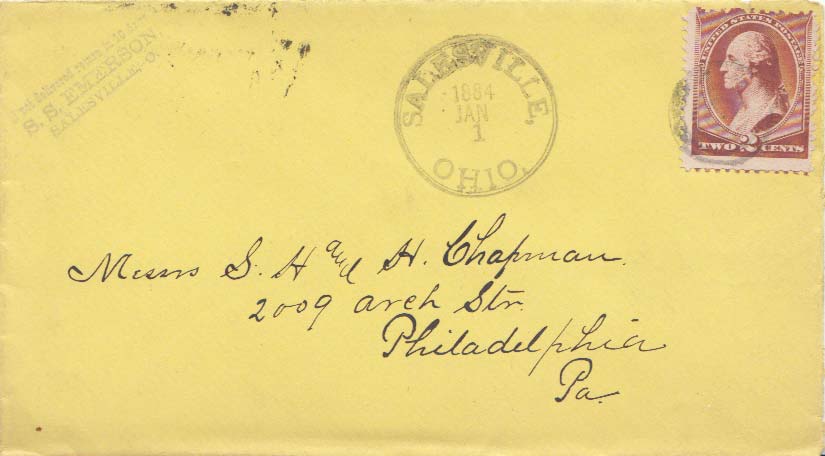 not delivered return in 10 days
S. S. EMERSON,
SALESVILLE, O.
SALESVILLE,
1884
JAN
1
OHIO.
UNITED STATES POSTAGE
TWO 2 CENTS
Messrs S. H and H. Chapman.
2009 Arch Str.
Philadelphia
Pa.